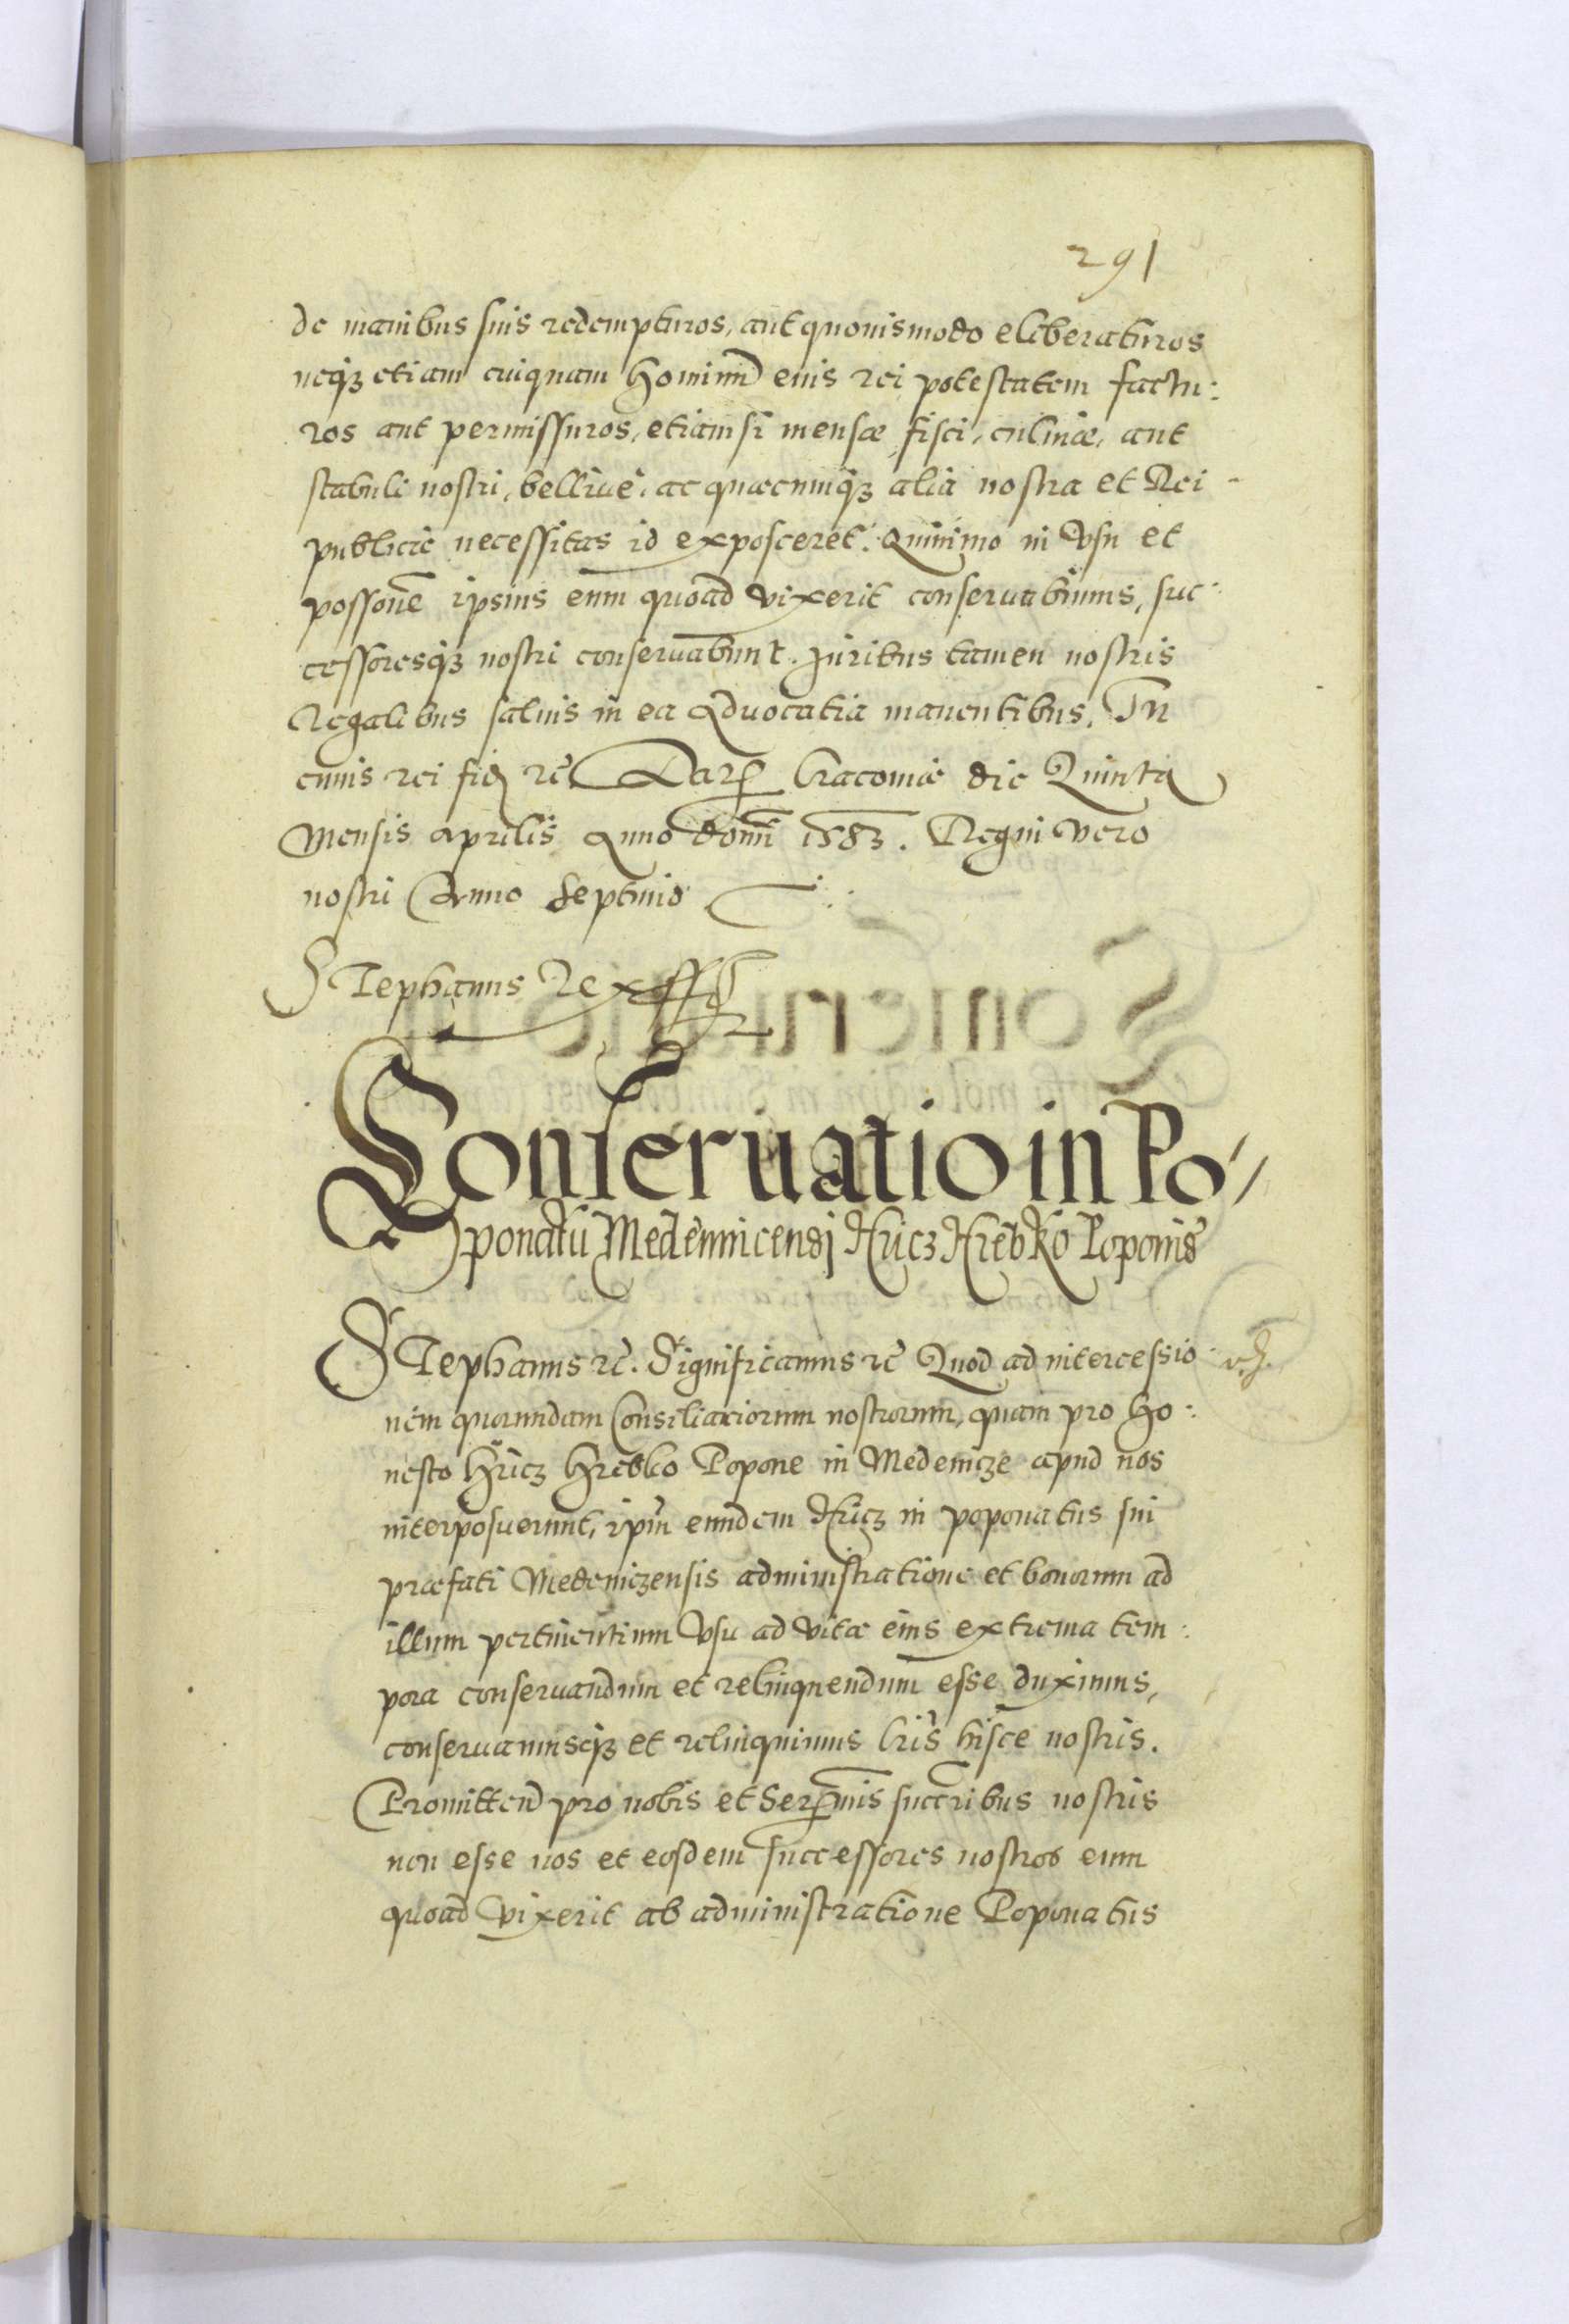 291
de manibus suis redempturos, aut quouismodo eliberaturos
neqz etiam cuiquam hominū eius rei potestatem factu:
ros aut permissuros, etiam si mensæ, fisci, culinæ, aut
stabuli nostri, belliue, ac quæcunqz alia nostra et Rei
publicæ necessitas id exposceret. Quinimo in vsu et
possone ipsius eum quoad vixerit conseruabimus, suc
cessoresqz nostri conseruabunt. Juribus tamen nostris
Regalibus saluis in ea Aduocatia manentibus. In
cuius rei fid rc. Dat Cracouiæ die Quinta
Mensis Aprilis Anno domi 1583. Regni vero
nostri Anno Septimo
Stephanus Rex sst
Conseruatio in Po
ponatu Medenicensi Hricz Hrebko Poponis
Stephanus rc. Significamus rc Quod ad intercessio
nem quorundam Consiliariorum nostrorum, quam pro ho:
nesto Hricz Hrebko Popone in Medenicze apud nos
interposuerunt, ipm eundem Hricz in poponatus sui
præfati Medeniczensis administratione et bonorum ad
illum pertinentium vsu ad vitæ eius extrema tem:
pora conseruandum et relinquendum esse duximus,
conseruamusqz et relinquimus lris hisce nostris.
Promitten pro nobis et Sermis succribus nostris
non esse nos et eosdem successores nostros eum
quoad vixerit ab administratione Poponatus